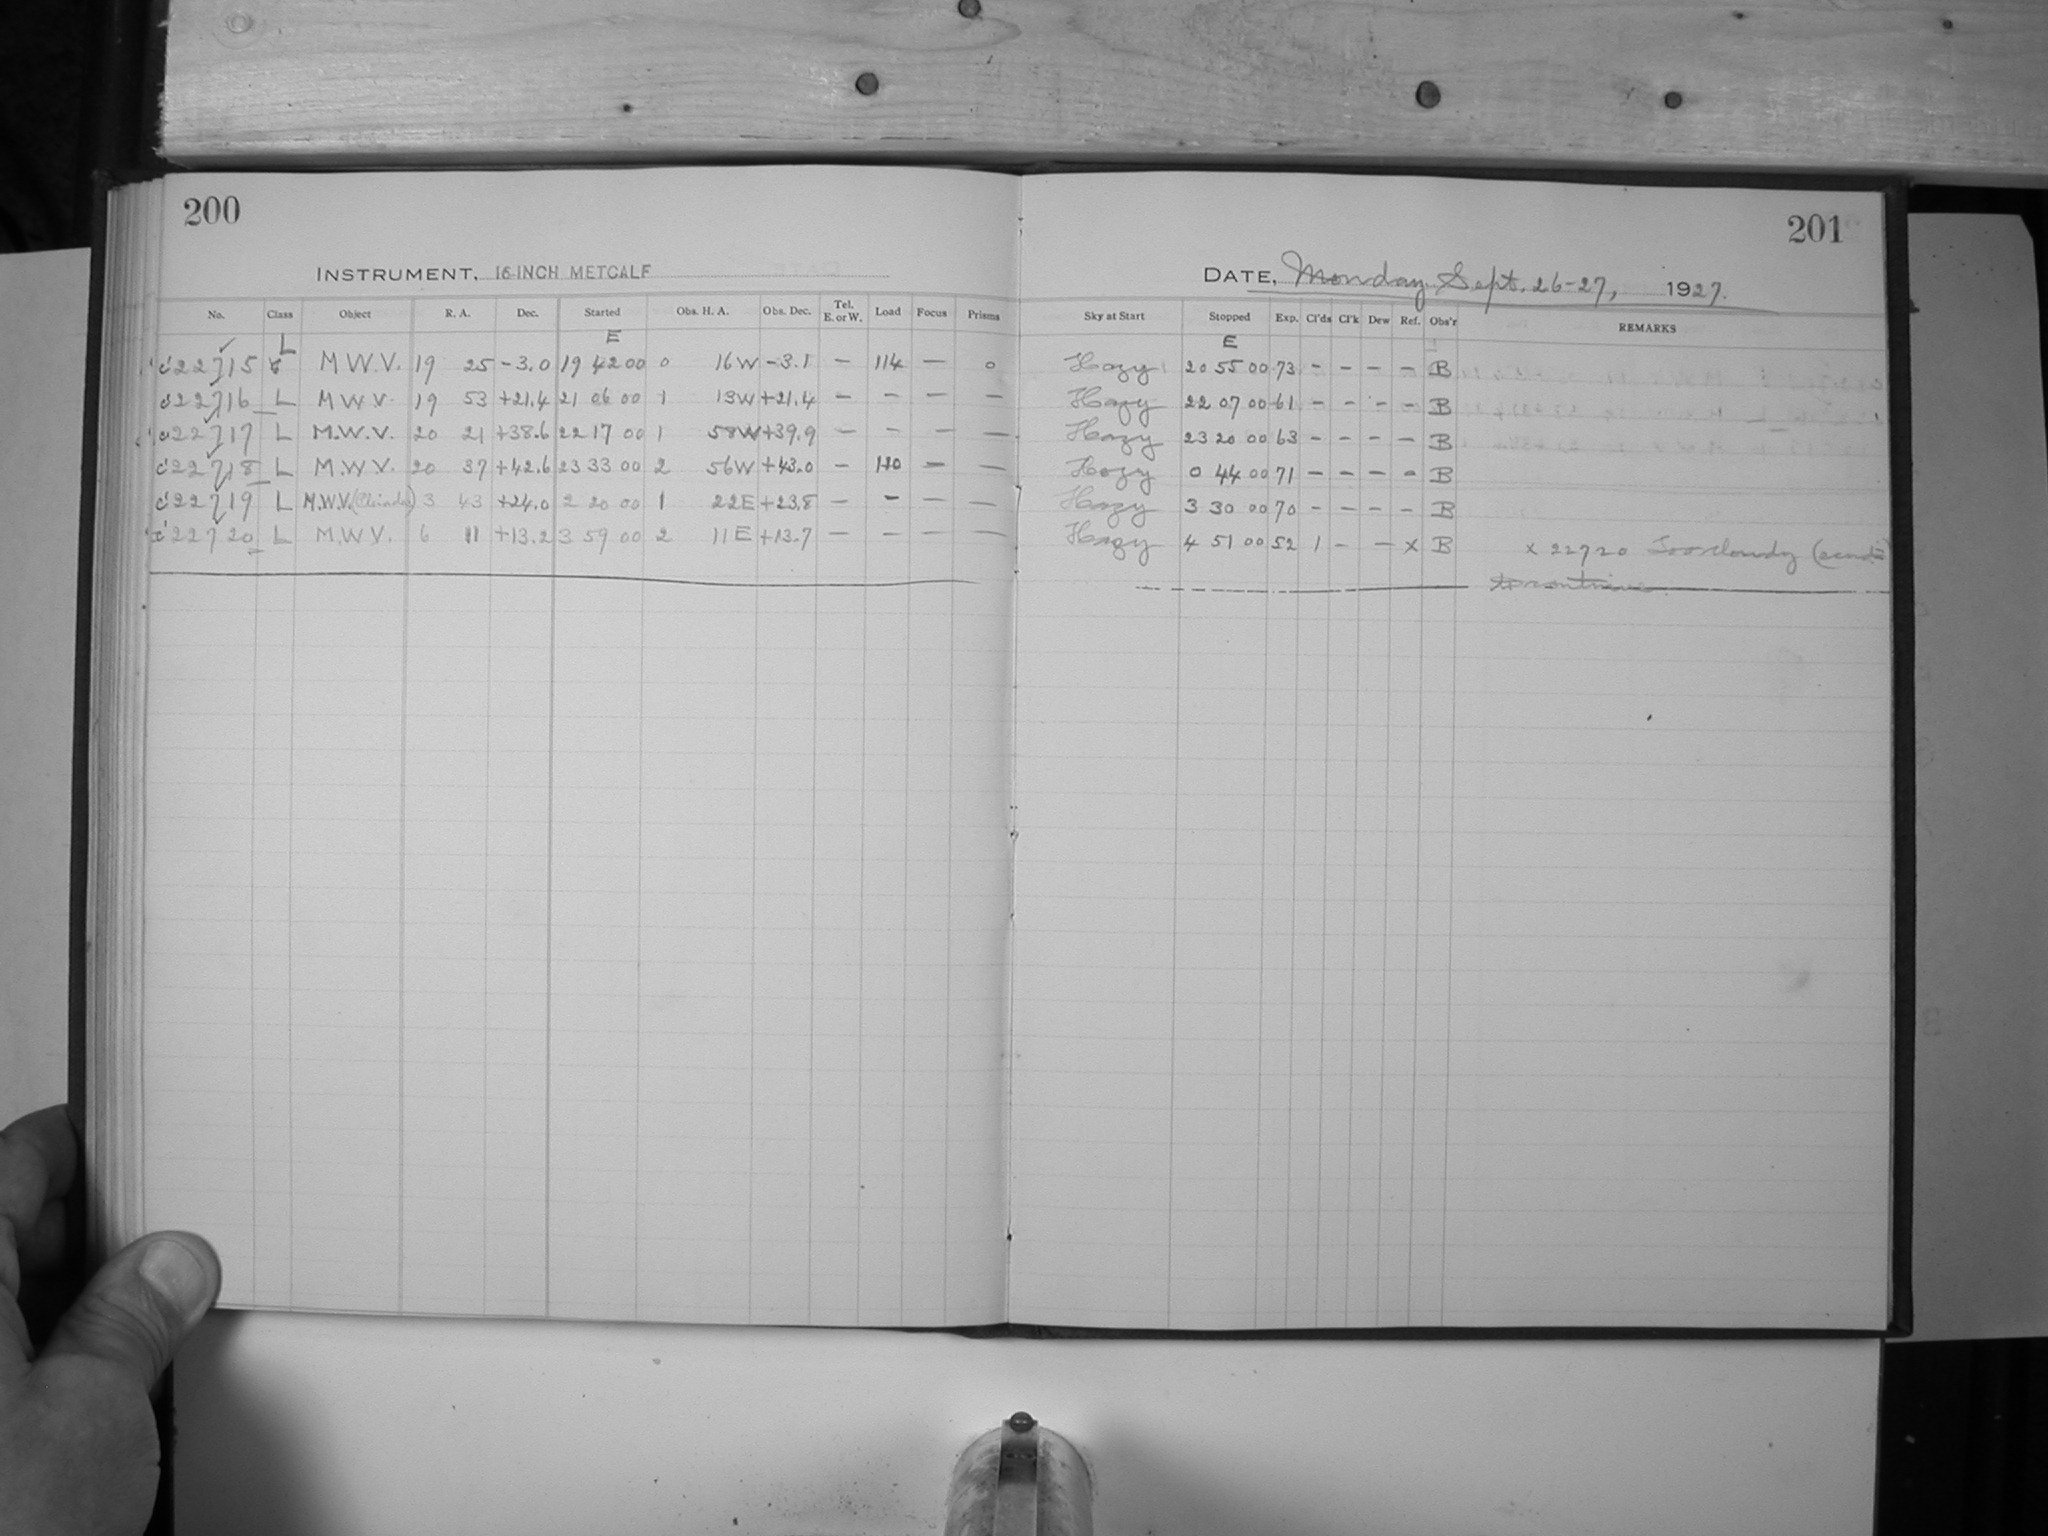 200
INSTRUMENT, 16-INCH METCALF
No. Class Object R. A. Dec. Started Obs. H. A. Obs. Dec. Tel. E. or W. Load Focus Prisms
L E
22715 MWV. 19 25 -3.0 19 42 00 0 16W -3.1 — 114 — 0
22716 L MWV. 19 53 +21.4 21 06 00 1 13W +21.4 — — — —
22717 L M.W.V. 20 21 +38.6 22 17 00 1 58W +39.9 — — — —
22718 L M.W.V. 20 37 +42.6 23 33 00 2 56W +43.0 — 110 — —
22719 L M.W.V. 3 43 +24.0 2 20 00 1 22E +23.8 — — — —
22720 L M.W.V. 6 11 +13.2 3 59 00 2 11E +13.7 — — — —
201
DATE, Monday Sept. 26-27, 1927.
Sky at Start Stopped Exp. Cl'ds Cl'k Dew Ref. Obs'r REMARKS
E
Hazy 20 55 00 73 — — — — B
Hazy 22 07 00 61 — — — — B
Hazy 23 20 00 63 — — — — B
Hazy 0 44 00 71 — — — — B
Hazy 3 30 00 70 — — — — B
Hazy 4 51 00 52 1 — — x B x 22720 Too cloudy
to continue